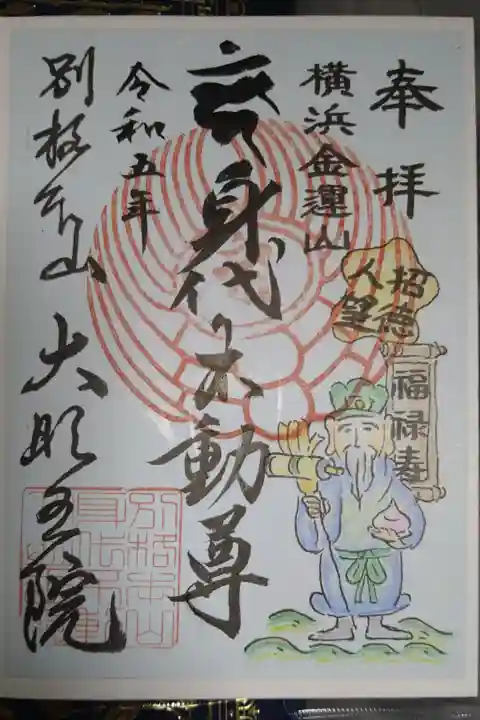 奉拝
横浜金運山
招徳
人望
福禄寿
身代り不動尊
令和五年
別格本山 大明王院